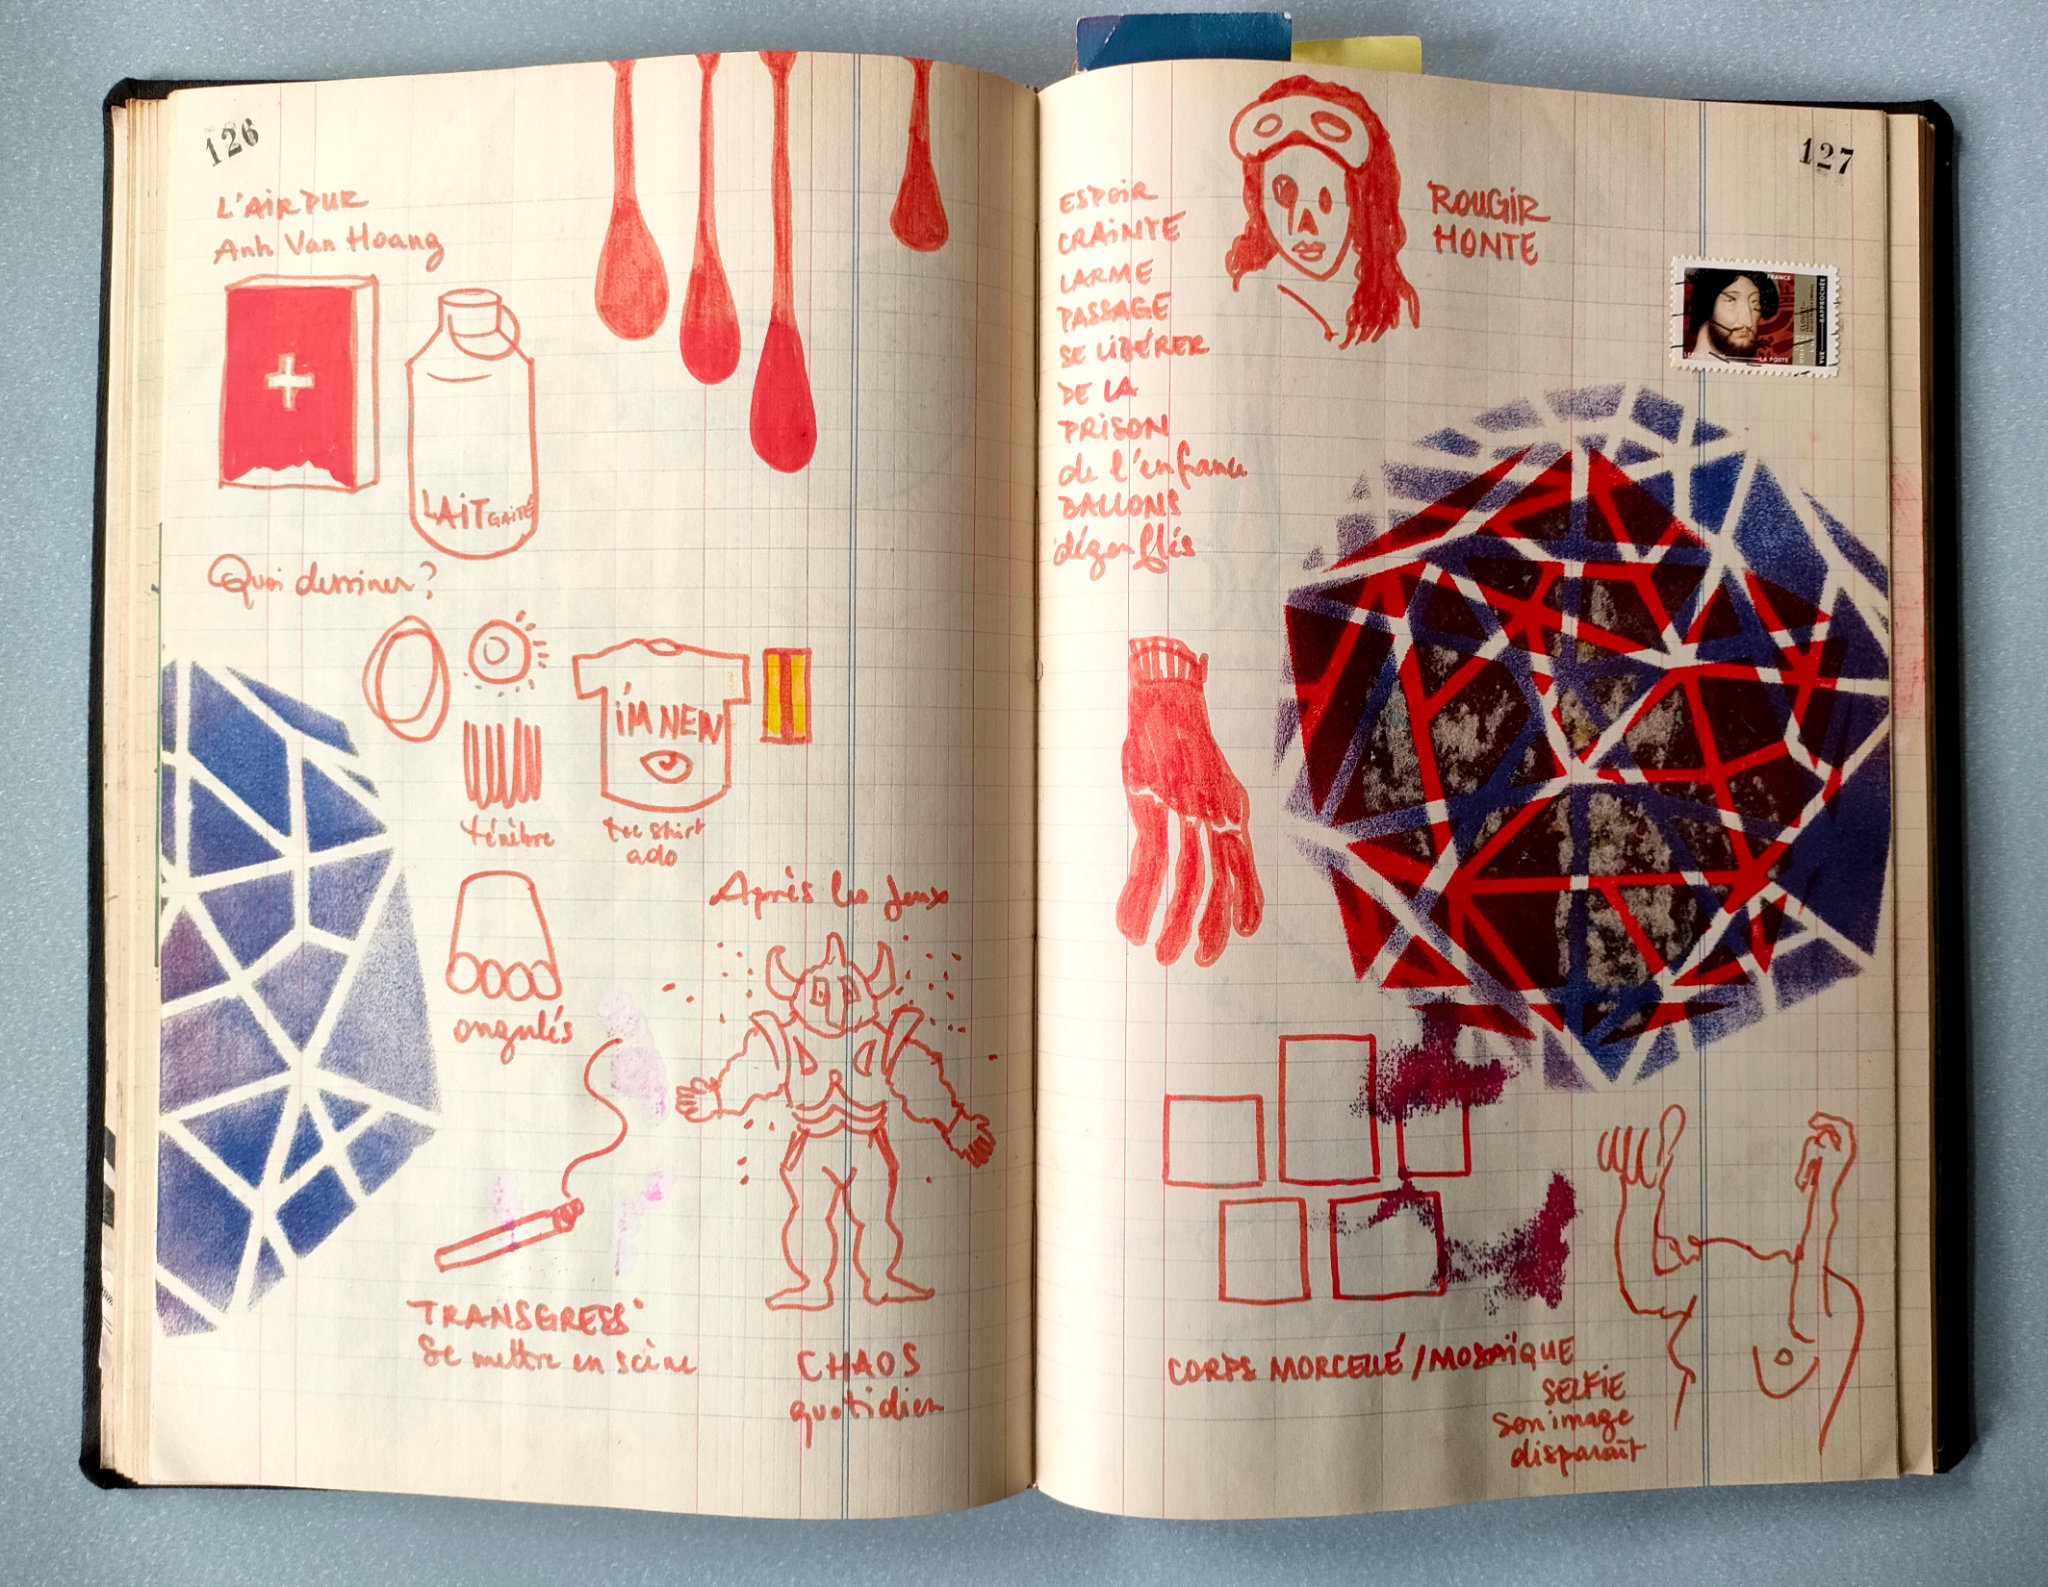 126
L'AiR PUR
Anh Van Hoang
LAiT GAiTÉ
Quoi dessiner?
i'M NEW
ténèbre
tee shirt
ado
ongulés
Après les Jeux
"TRANSGRESS"
Se mettre en scène
CHAOS
quotidien
127
ESPOiR
CRAiNTE
LARME
PASSAGE
SE LiBÉRER
DE LA
PRiSON
de l'enfance
BALLONS
dégonflés
ROUGiR
HONTE
FRANCE
LA POSTE
CORPS MORCELLÉ / MOSAÏQUE
SELFiE
Son image
disparaît